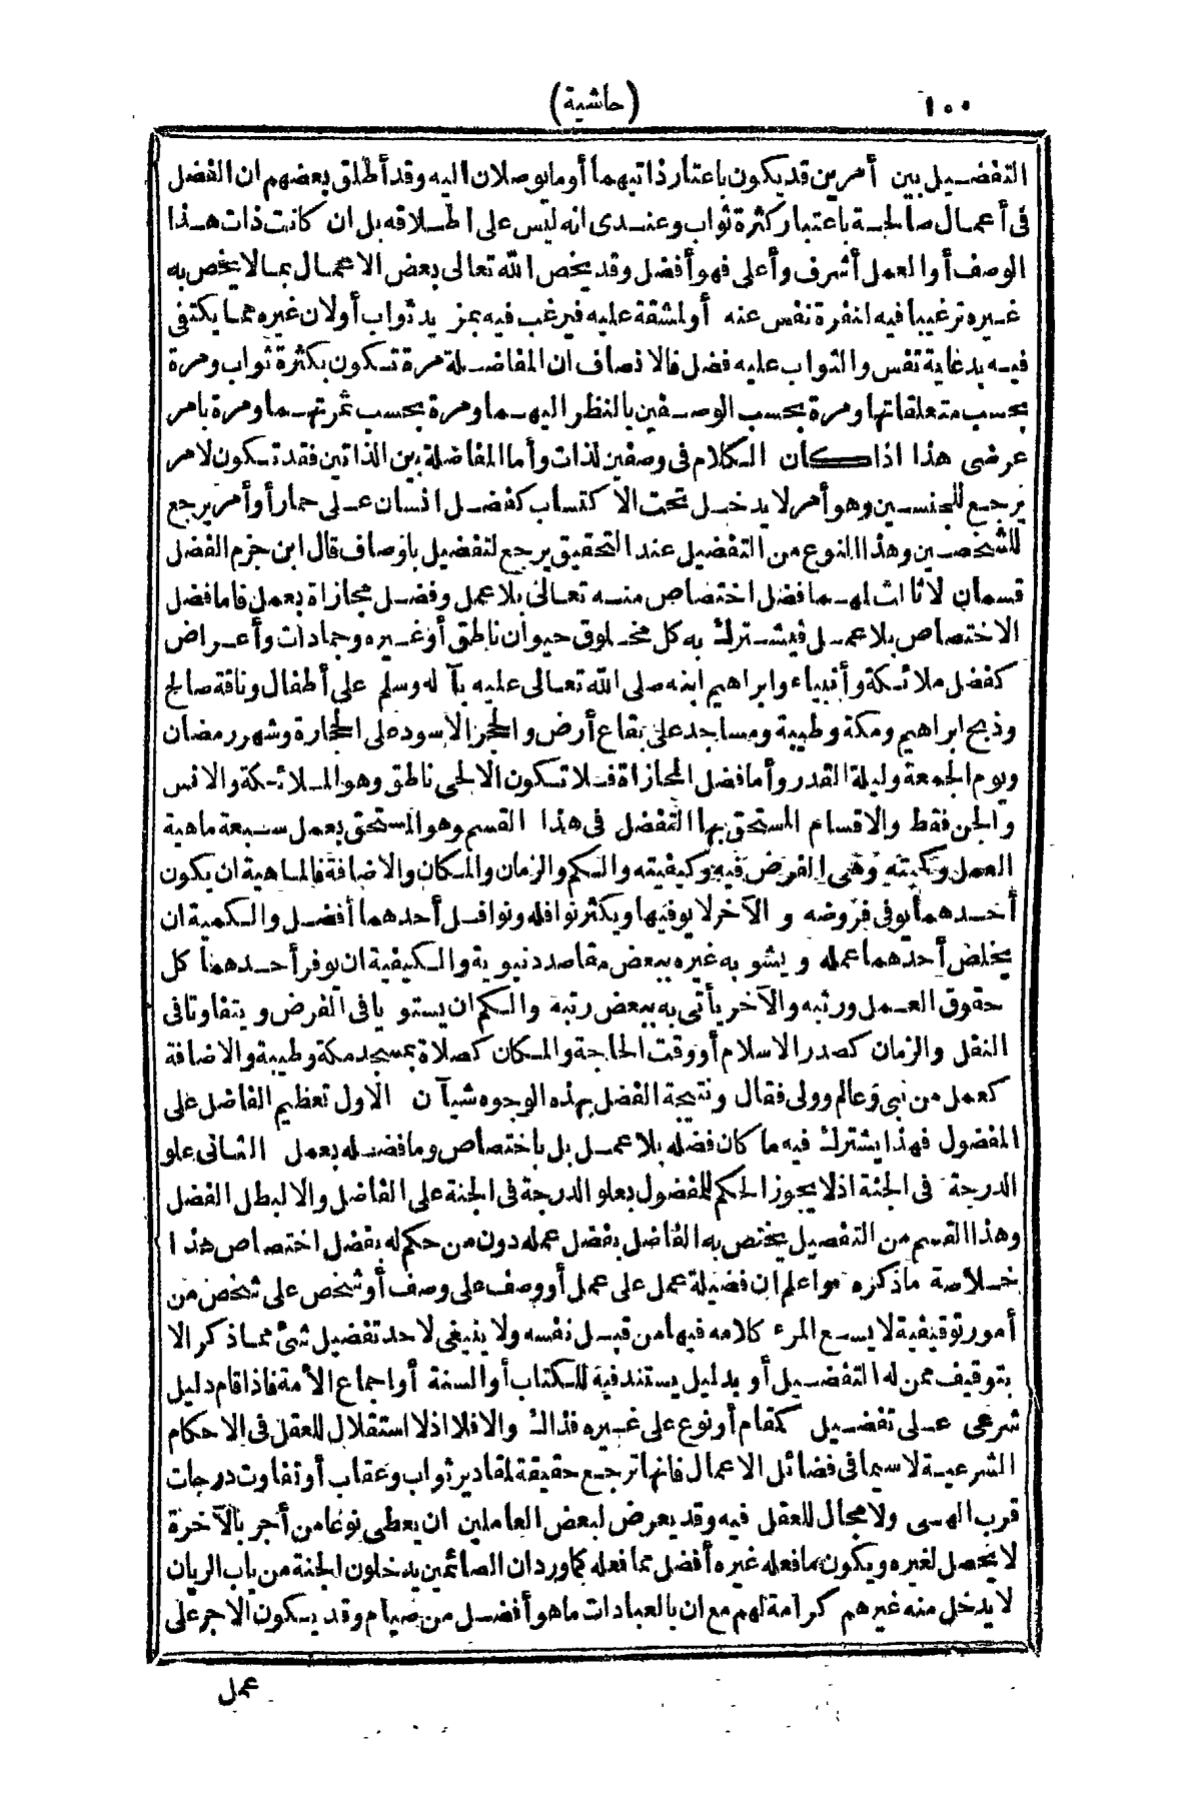 ١٠٠ (حاشية)
التفضيل بين أمرين قد يكون باعتبار ذاتيهما أو ما يوصلان اليه وقد أطلق بعضهم ان الفضل
فى أعمال صالحة باعتبار كثرة ثواب وعندى انه ليس على اطلاقه بل ان كانت ذات هذا
الوصف أو العمل أشرف وأعلى فهو أفضل وقد يخص الله تعالى بعض الاعمال بما لا يخص به
غيره ترغيبا فيه لنفرة نفس عنه أو لمشقة عليه فيرغب فيه بمزيد ثواب أولان غيره مما يكتفى
فيه بدغاية نفس والثواب عليه فضل فالانصاف ان المفاضلة مرة تكون بكثرة ثواب ومرة
بحسب متعلقاتها ومرة بحسب الوصفين بالنظر اليهما ومرة بحسب ثمرتهما ومرة بامر
عرضى هذا اذا كان الكلام فى وصفين لذات وأما المفاضلة بين الذاتين فقد تكون لامر
يرجع للجنسين وهو أمر لا يدخل تحت الاكتساب كفضل انسان على حمار أو أمر يرجع
للشخصين وهذا النوع من التفضيل عند التحقيق يرجع لتفضيل باوصاف قال ابن حزم الفضل
قسمان لا ثالث لهما فضل اختصاص منه تعالى بلا عمل وفضل مجازاة بعمل فاما فضل
الاختصاص بلا عمل فيشترك به كل مخلوق حيوان ناطق أو غيره وجمادات وأعراض
كفضل ملائكة وأنبياء وابراهيم ابنه صلى الله تعالى عليه بآله وسلم على أطفال وناقة صالح
وذبح ابراهيم ومكة وطيبة ومساجد على بقاع أرض والحجر الاسود على الحجارة وشهر رمضان
ويوم الجمعة وليلة القدر وأما فضل المجازاة فلا تكون الا لحى ناطق وهو الملائكة والانس
والجن فقط والاقسام المستحق بها التفضل فى هذا القسم وهو المستحق بعمل سبعة ماهية
العمل وكميته وهى الفرض فيه وكيفيته والكم والزمان والمكان والاضافة فالماهية ان يكون
أحدهما يوفى فروضه و الآخر لا يوفيها ويكثر نوافله ونوافل أحدهما أفضل والكمية ان
يخلص أحدهما عمله ويشوبه غيره ببعض مقاصد دنيوية والكيفية ان يوفر أحدهما كل
حقوق العمل ورتبه والآخر يأتى به ببعض رتبة والكم ان يستويا فى الفرض ويتفاوتا فى
النفل والزمان كصدر الاسلام أو وقت الحاجة والمكان كصلاة بمسجد مكة وطيبة والاضافة
كعمل من نبى وعالم وولى فقال ونتيجة الفضل بهذه الوجوه شيآن الاول تعظيم الفاضل على
المفضول فهذا يشترك فيه ما كان فضله بلا عمل بل باختصاص وما فضله بعمل الثانى علو
الدرجة فى الجنة اذ لا يجوز الحكم للمفضول بعلو الدرجة فى الجنة على الفاضل والا لبطل الفضل
وهذا القسم من التفصيل يختص به الفاضل بفضل عمله دون من حكم له بفضل اختصاص هذا
خلاصة ما ذكره واعلم ان فضيلة عمل على عمل أو وصف على وصف أو شخص على شخص من
أمور توقيفية لا يسع المرء كلامه فيها من قبل نفسه ولا ينبغى لاحد تفضيل شئ مما ذكر الا
بتوقيف ممن له التفضيل أو بدليل يستند فيه للكتاب أو السنة أو اجماع الأمة فاذا قام دليل
شرعى على تفضيل كمقام أو نوع على غيره فذاك والا فلا اذ لا استقلال للعقل فى الاحكام
الشرعية لا سيما فى فضائل الاعمال فانها ترجع حقيقة لمقادير ثواب وعقاب أو تفاوت درجات
قرب الهى ولا مجال للعقل فيه وقد يعرض لبعض العاملين ان يعطى نوعا من أجر بالآخرة
لا يحصل لغيره ويكون ما فعله غيره أفضل مما فعله كما ورد ان الصائمين يدخلون الجنة من باب الريان
لا يدخل منه غيرهم كرامة لهم مع ان بالعبادات ما هو أفضل من صيام وقد يكون الاجر على
عمل